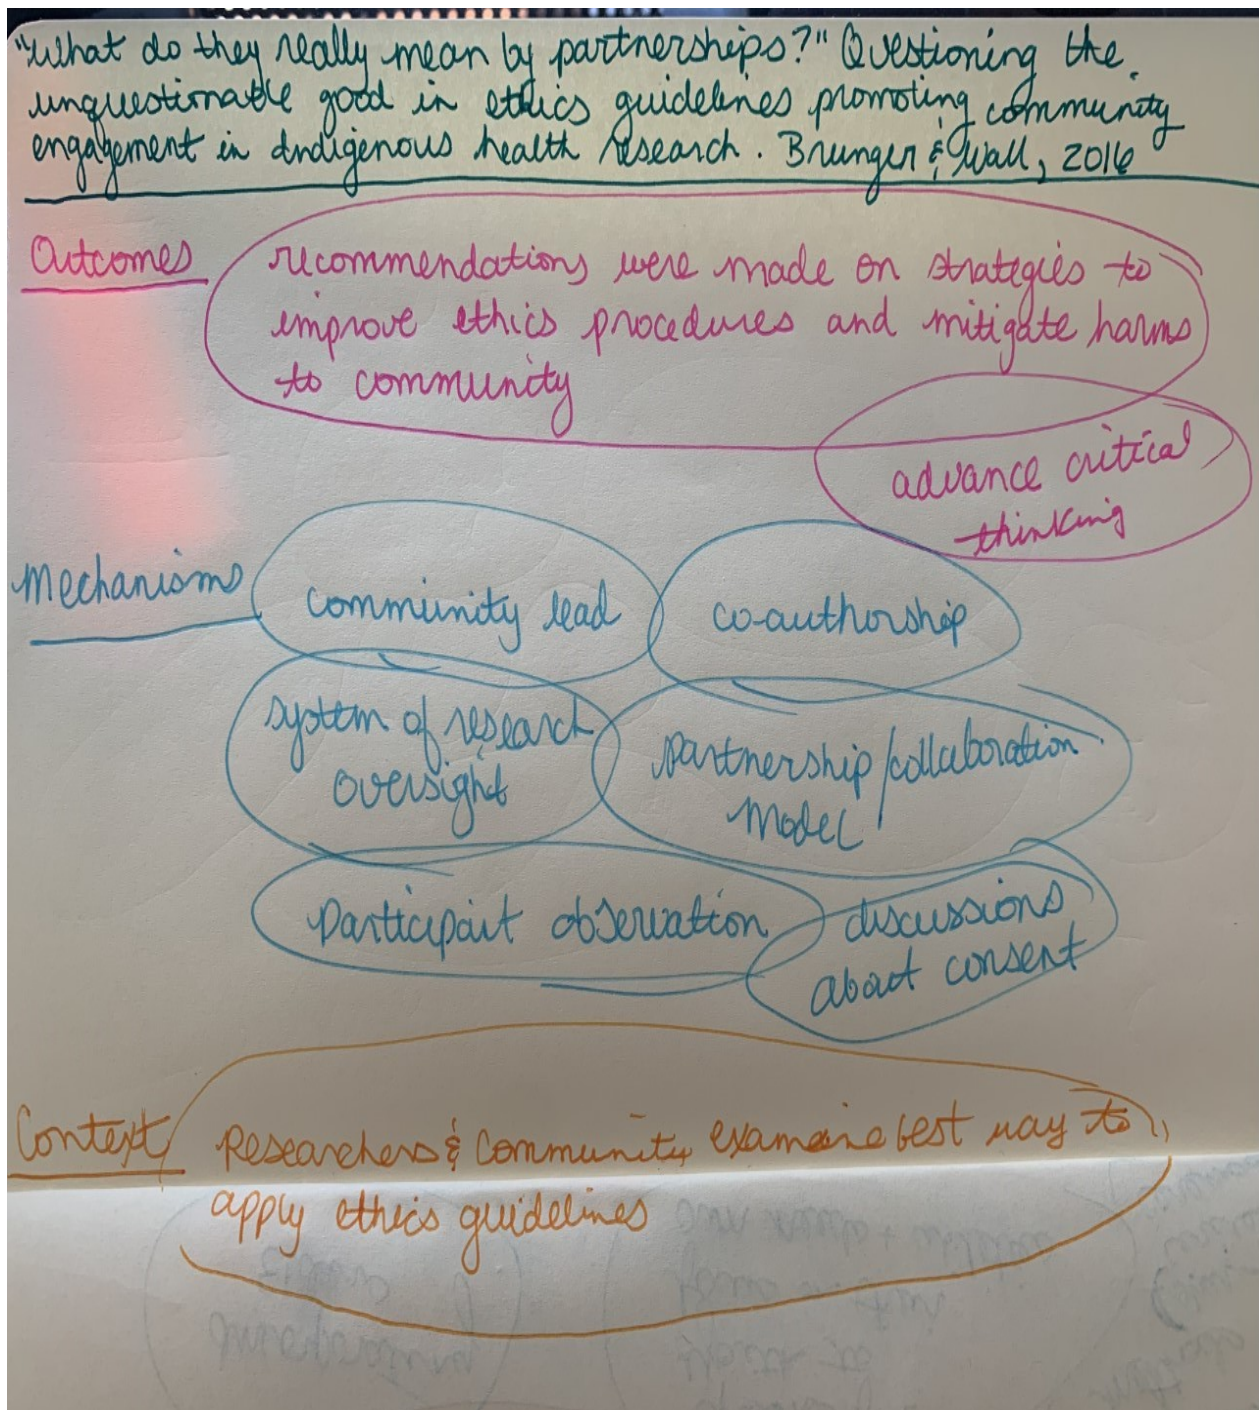 "What do they really mean by partnerships?" Questioning the
unquestionable good in ethics guidelines promoting community
engagement in Indigenous health research. Brunger & Wall, 2016
Outcomes
recommendations were made on strategies to
improve ethics procedures and mitigate harms
to community
advance critical
thinking
Mechanisms
community lead
co-authorship
system of research
oversight
partnership/collaboration
model
participant observation
discussions
about consent
Context
Researchers & community examine best way to
apply ethics guidelines